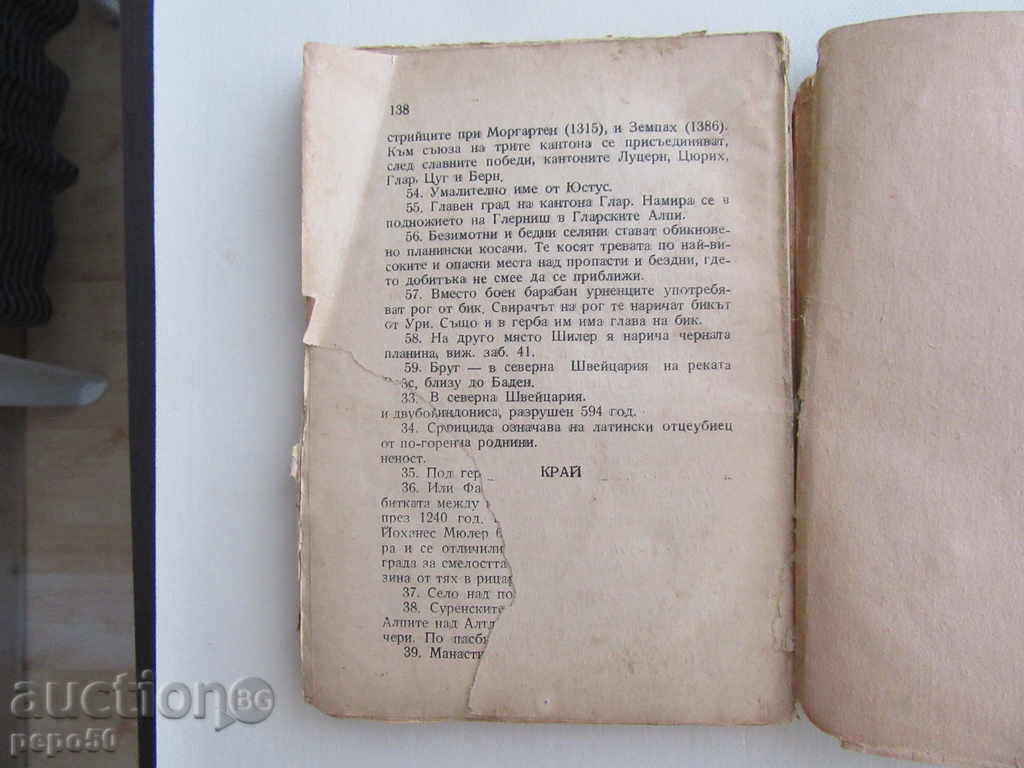 138
стрийците при Моргартен (1315), и Земпах (1386).
Към съюза на трите кантона се присъединяват,
след славните победи, кантоните Луцерн, Цюрих,
Глар, Цуг и Берн.
54. Умалително име от Юстус.
55. Главен град на кантона Глар. Намира се в
подножието на Глерниш в Гларските Алпи.
56. Безимотни и бедни селяни стават обикнове-
но планински косачи. Те косят тревата по най-ви-
соките и опасни места над пропасти и бездни, где-
то добитъка не смее да се приближи.
57. Вместо боен барабан урненците употребя-
ват рог от бик. Свирачът на рог те наричат бикът
от Ури. Също и в герба им има глава на бик.
58. На друго място Шилер я нарича черната
планина, виж. заб. 41.
59. Бруг — в северна Швейцария на реката
близу до Баден.
33. В северна Швейцария.
разрушен 594 год.
34. означава на латински отцеубиец
от по-горе роднини.
неност.
35. Пол гер
КРАЙ
36. Или Фа
битката между
през 1240 год.
Йоханес Мюлер
ра и се отличили
града за смелостта
зина от тях в рица
37. Село над по
38. Суренските
Алпите над Алтд
чери. По пасб
39. Манасти
auction BG
pepo50